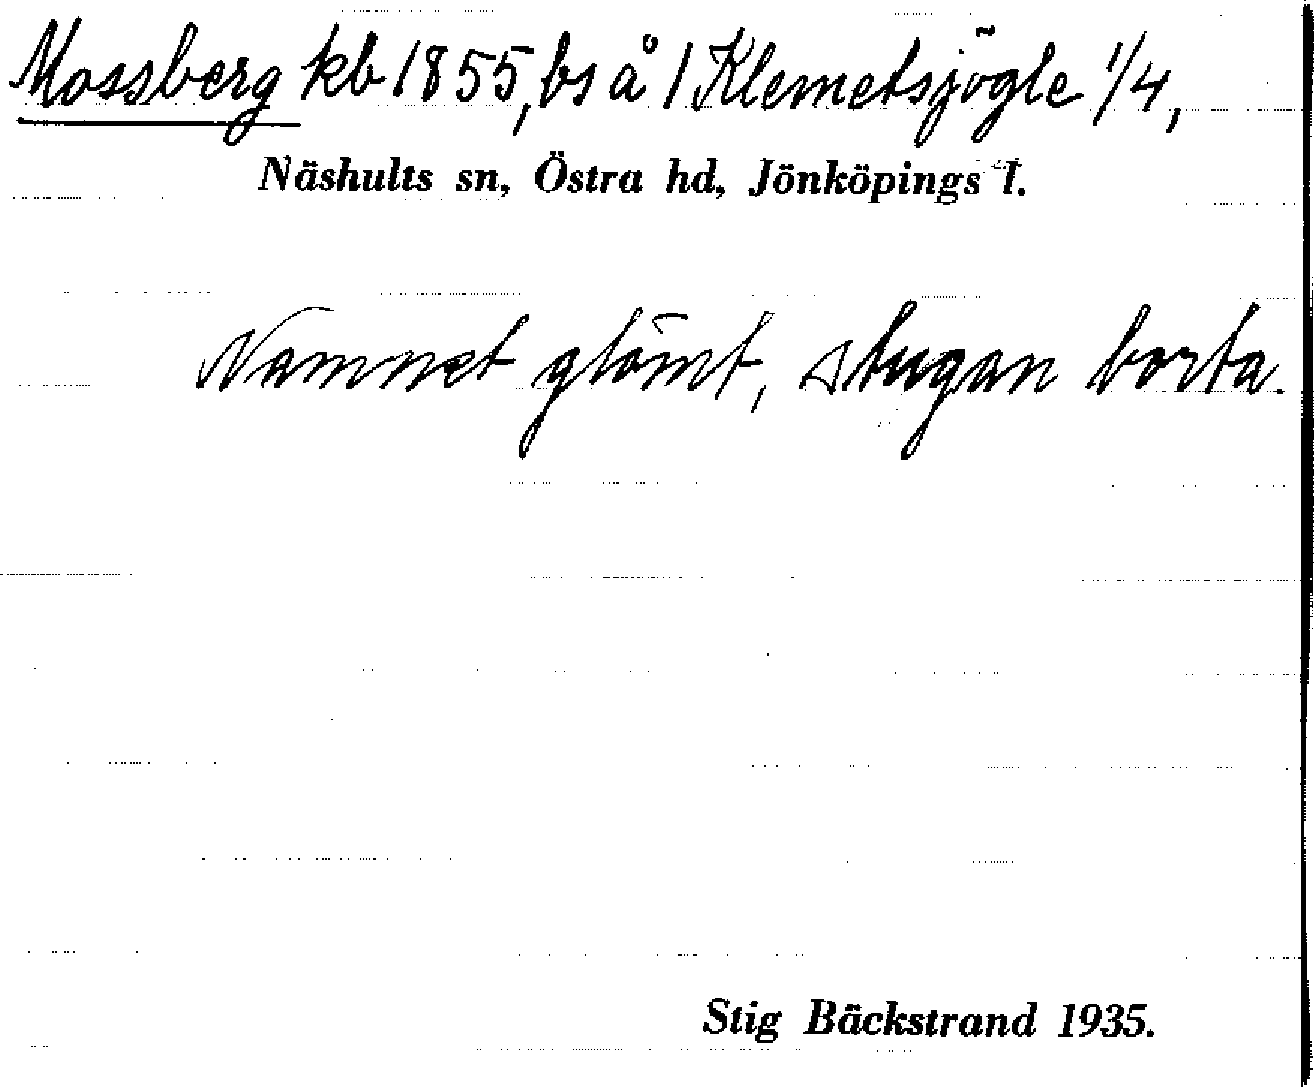 Mossberg kb 1855, bs å 1 Klemetsjögle 1/4,
Näshults sn, Östra hd, Jönköpings l.
Namnet glömt, stugan borta.
Stig Bäckstrand 1935.